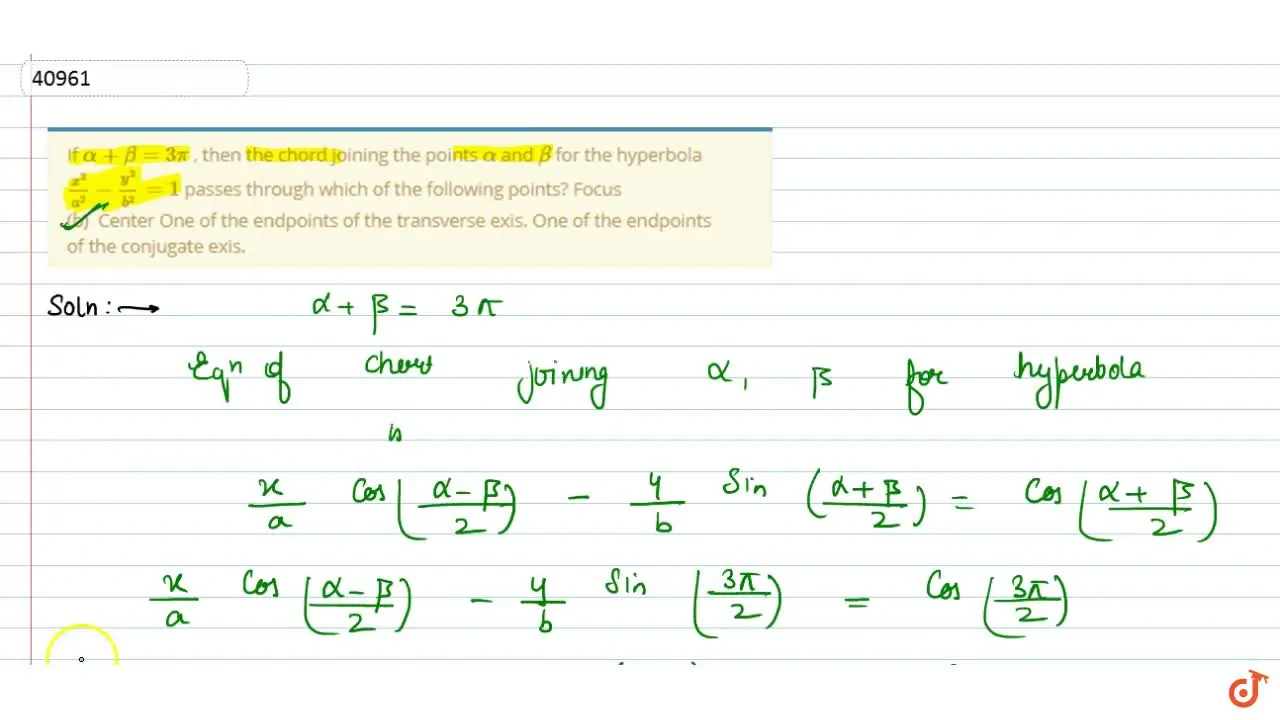 40961
If α + β = 3π , then the chord joining the points α and β for the hyperbola
x²/a² − y²/b² = 1 passes through which of the following points? Focus
(b) Center One of the endpoints of the transverse exis. One of the endpoints
of the conjugate exis.
Soln : → α + β = 3π
Eqⁿ of chord joining α, β for hyperbola
is
x/a Cos (α − β)/2 − y/b Sin (α + β)/2 = Cos (α + β)/2
x/a Cos (α − β)/2 − y/b Sin (3π/2) = Cos (3π/2)